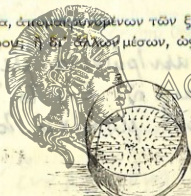 α, ἀπομακρυνομένων τῶν
ρου, ἢ δι᾽ ἄλλων μέσων, ὡς